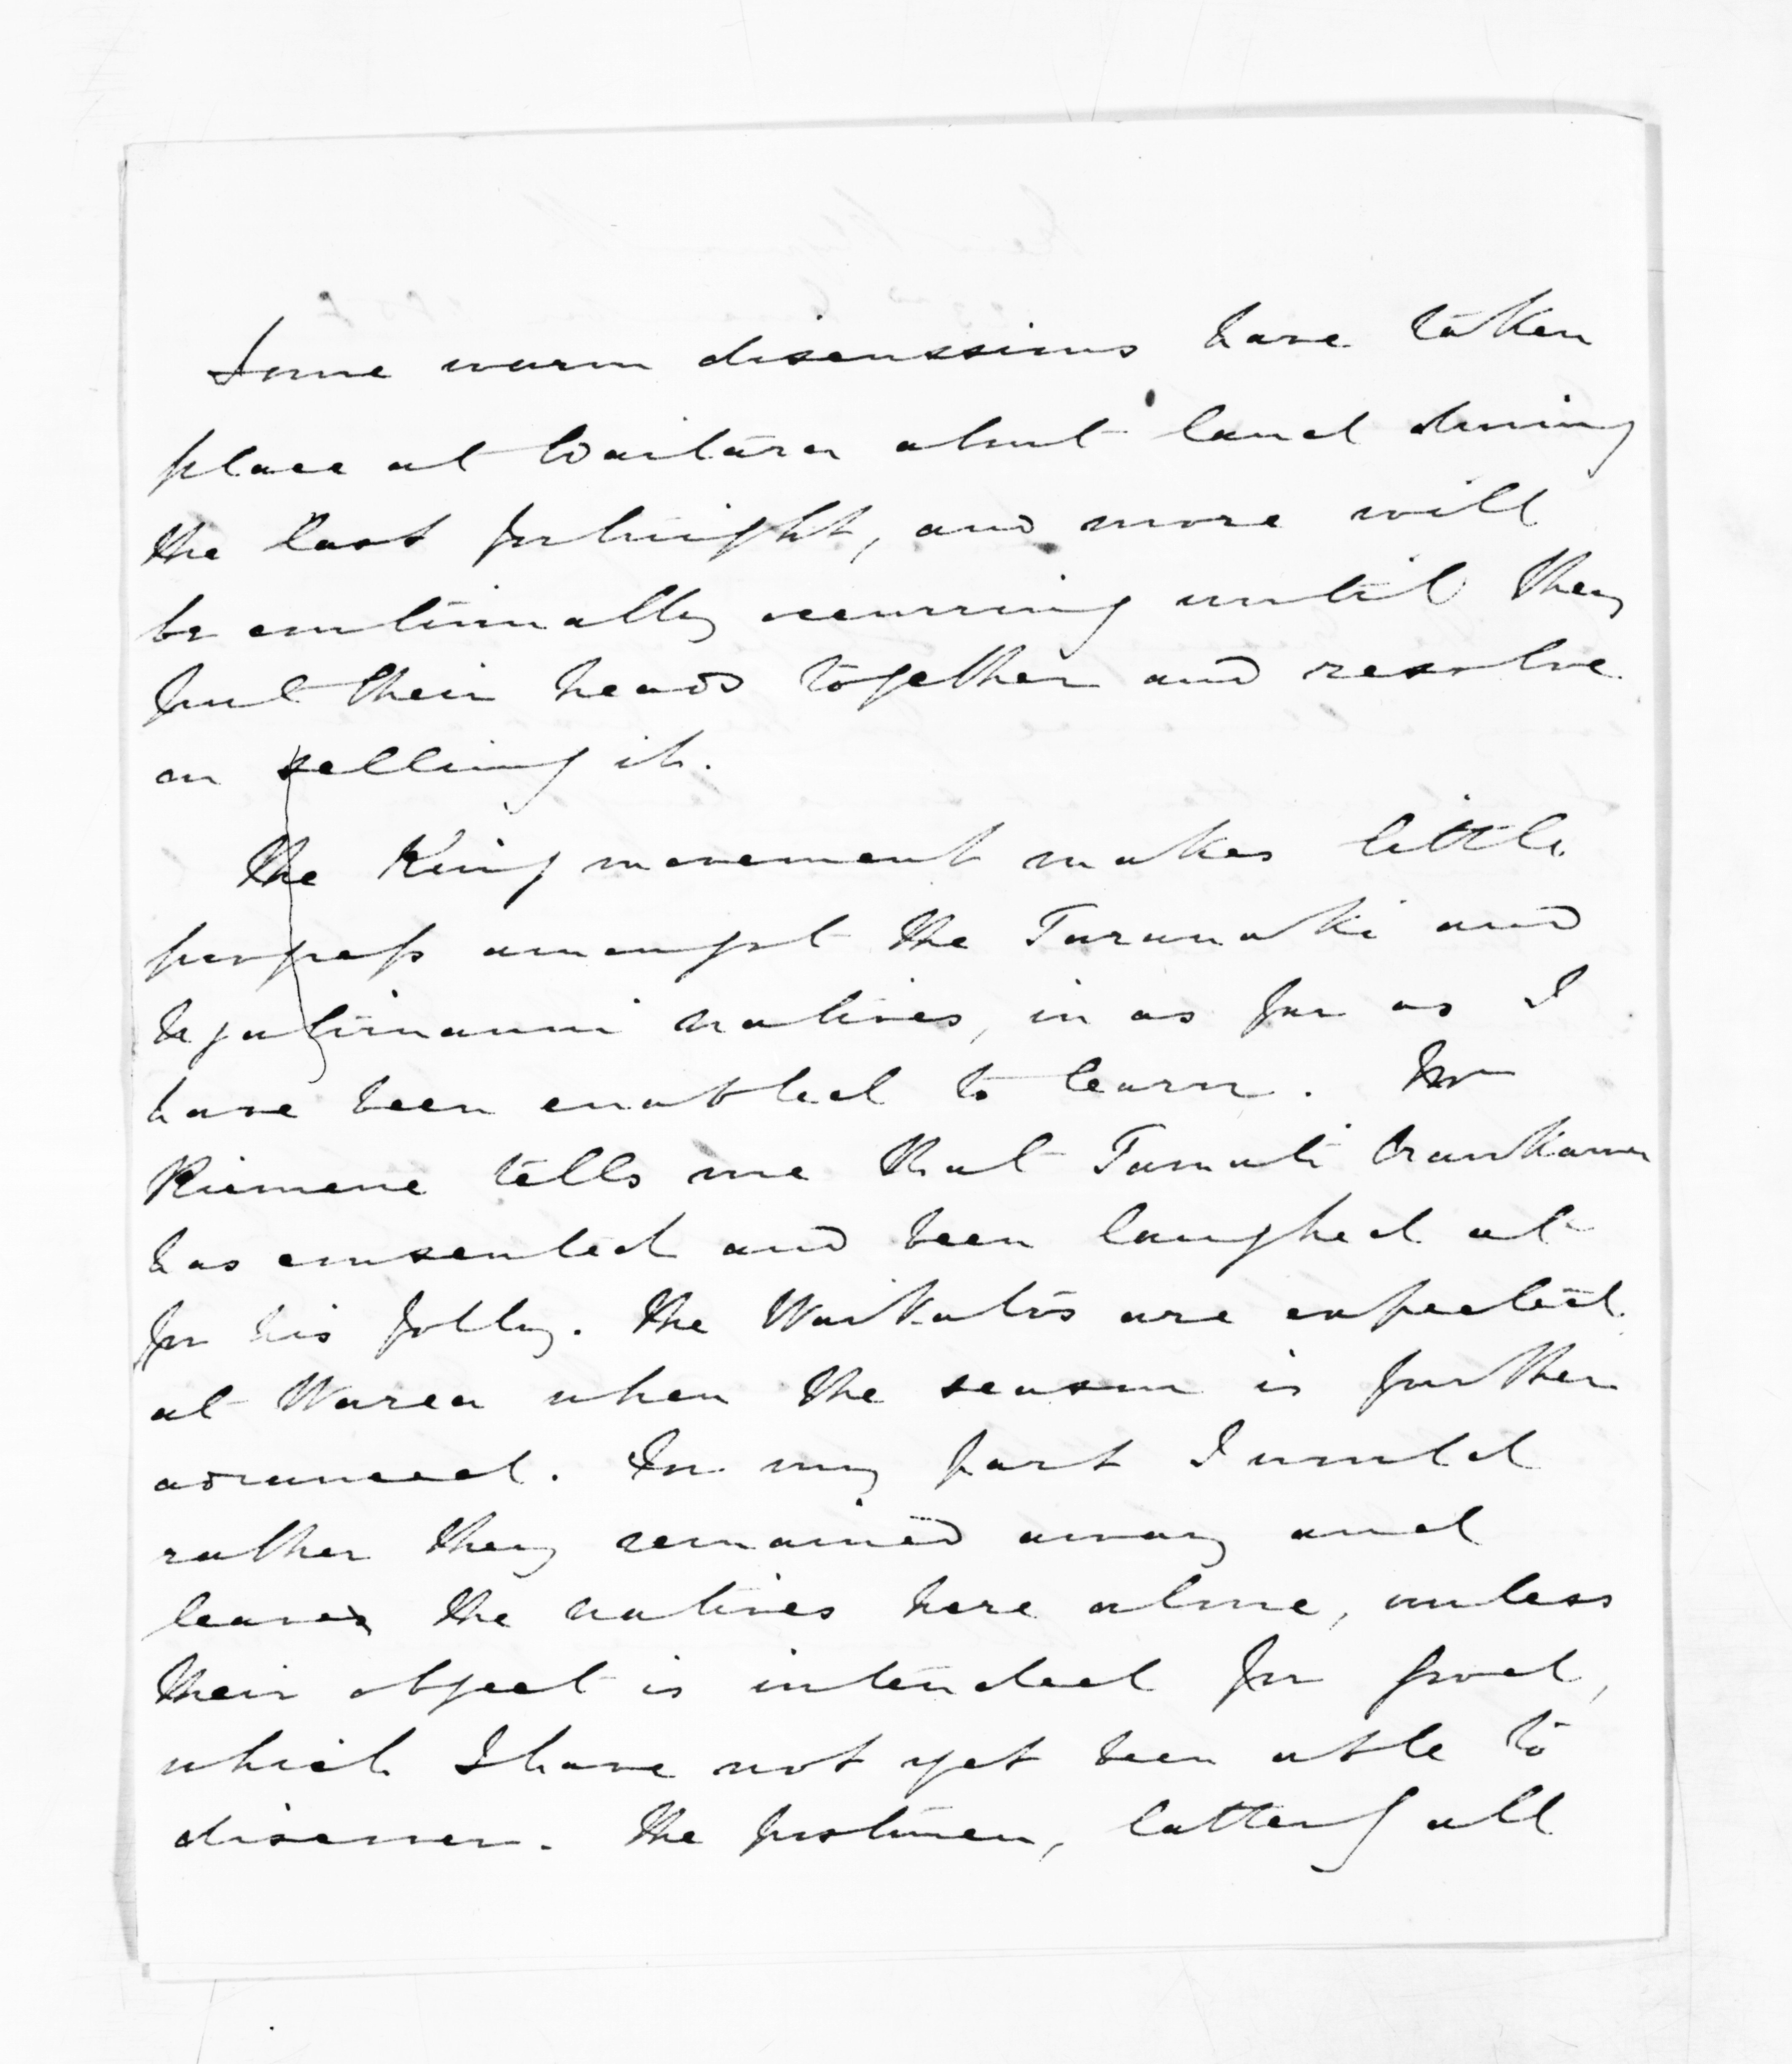 Some warm discussions have taken
place at Waitara about land during
the last fortnight, and more will
be continually occurring until they
put their heads together and resolve
on selling it.
The King movement makes little
progress amongst the Taranaki and
Ngatiruanui natives, in as far as I
have been enabled to learn. Mr
Riemenc tells me that Tamati
has consented and been laughed at
for his folly. The Waikatos are expected
at Warea when the season is further
advanced. For my part I would
rather they remained away and
leave the natives here alone, unless
their object is intended for good,
which I have not yet been able to
discover. The postmen, latterly all